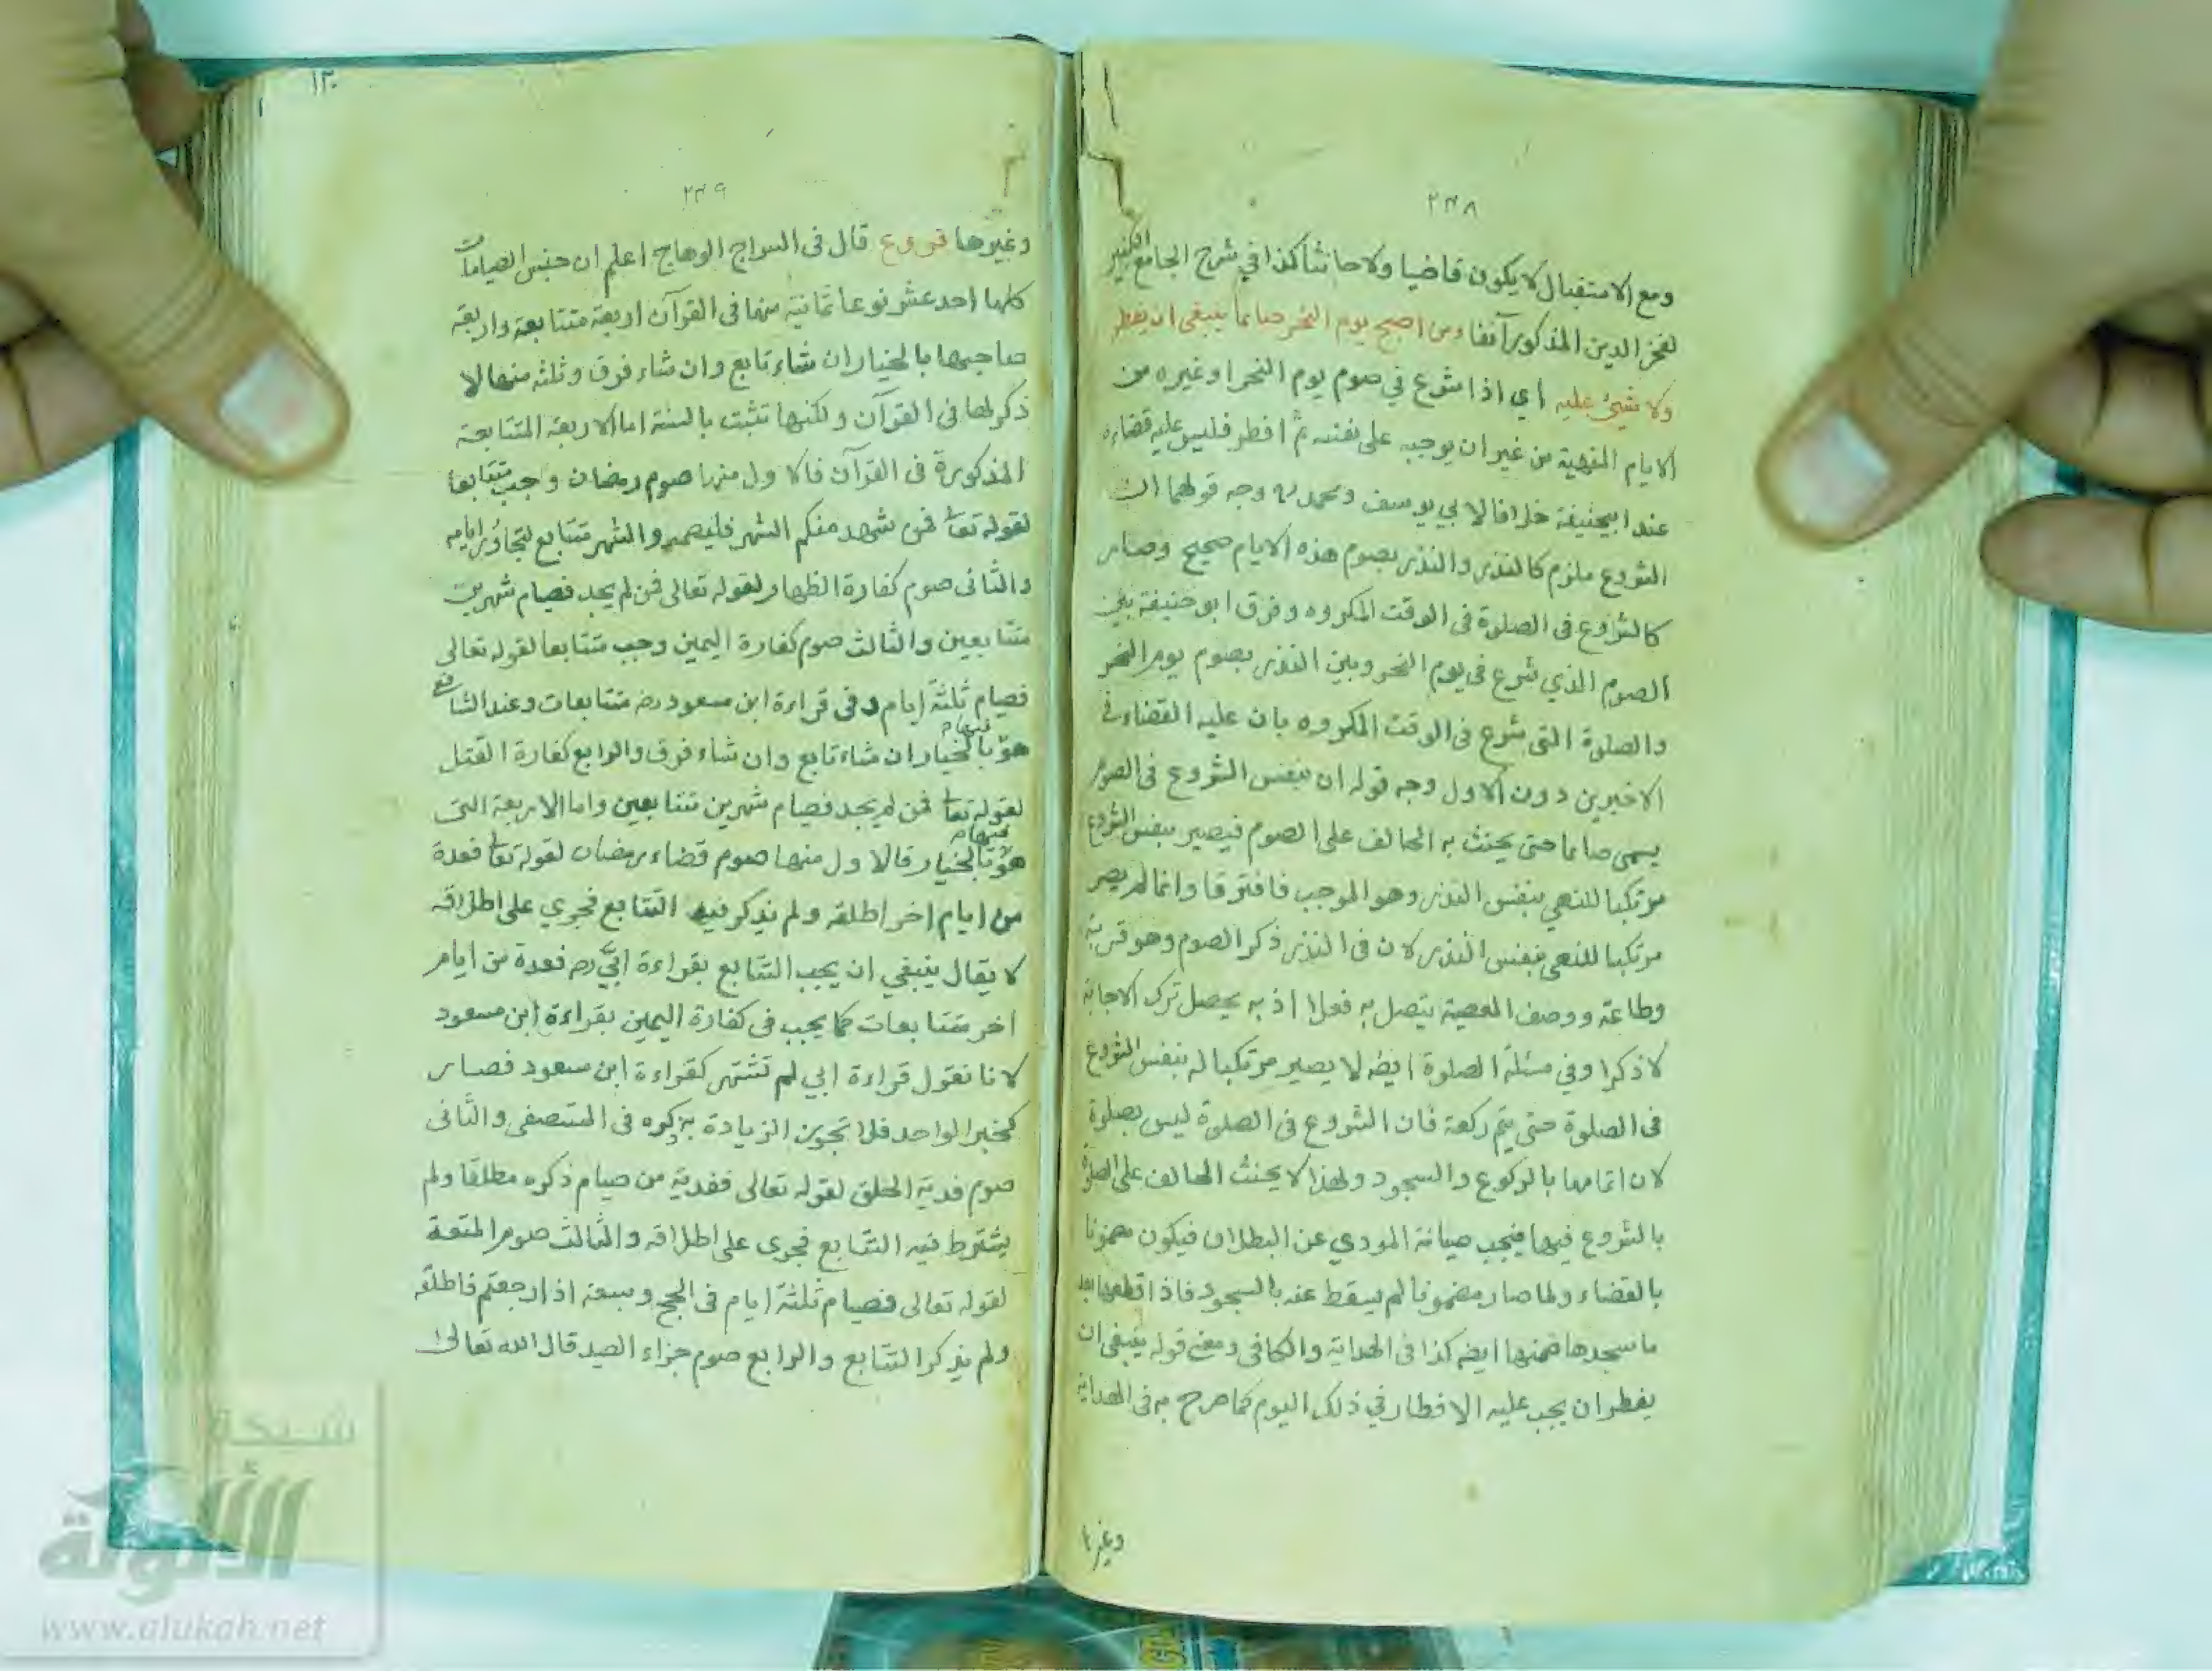 ٢٣٨
ومع الاستقبال لا يكون قاضيا ولا حانثا كذا في شرح الجامع الكبير
لفخر الدين المذكور آنفا ومن اصبح يوم النحر صائما ينبغي ان يفطر
ولا شيئ عليه اي اذا شرع في صوم يوم النحر او غيره من
الايام المنهية من غير ان يوجبه على نفسه ثم افطر فليس عليه قضاءه
عند ابيحنيفة خلافا لابي يوسف ومحمد وجه قولهما ان
الشروع ملزم كالنذر والنذر بصوم هذه الايام صحيح وصار
كالشروع فى الصلوة فى الوقت المكروه وفرق ابو حنيفة بين
الصوم الذي شرع فى يوم النحر وبين النذر بصوم يوم النحر
والصلوة التى شرع فى الوقت المكروه بان عليه القضاء فى
الاخيرين دون الاول وجه قوله ان بنفس الشروع فى الصوم
يسمى صائما حتى يحنث به الحالف على الصوم فيصير بنفس الشروع
مرتكبا للنهي بنفس النذر وهو الموجب فافترقا وانما لم يصر
مرتكبا للنهي بنفس النذر لان فى النذر ذكر الصوم وهو قربة
وطاعة ووصف المعصية يتصل به فعلا اذ به يحصل ترك الاجابة
لا ذكرا وفي مسئلة الصلوة ايضا لا يصير مرتكبا له بنفس الشروع
فى الصلوة حتى يتم ركعة فان الشروع فى الصلوة ليس بصلوة
لان اتمامها بالركوع والسجود ولهذا لا يحنث الحالف على الصلوة
بالشروع فيها فيجب صيانة المودي عن البطلان فيكون مضمونا
بالقضاء ولما صار مضمونا لم يسقط عنه بالسجود فاذا قطعها بعد
ما سجدها ضمنها ايضا كذا فى الهداية والكافى ومعنى قوله ينبغى ان
يفطر ان يجب عليه الافطار في ذلك اليوم كما صرح به فى الهداية
وغيرها
١٢٠
٢٣٩
وغيرها فروع قال فى السراج الوهاج اعلم ان جنس الصيامات
كلها احد عشر نوعا ثمانية منها فى القرآن اربعة متتابعة واربعة
صاحبها بالخيار ان شاء تابع وان شاء فرق وثلثه منها لا
ذكر لها فى القرآن ولكنها تثبت بالسنة اما الاربعة المتتابعة
المذكورة فى القرآن فالاول منها صوم رمضان وجب متتابعا
لقوله تعا فمن شهد منكم الشهر فليصمه والشهر متتابع لتجاور ايامه
والثانى صوم كفارة الظهار لقوله تعالى فمن لم يجد فصيام شهرين
متتابعين والثالث صوم كفارة اليمين وجب متتابعا لقوله تعالى
فصيام ثلثة ايام وفى قراءة ابن مسعود رضه متتابعات وعند الشافع
هو فيها بالخيار ان شاء تابع وان شاء فرق والرابع كفارة القتل
لقوله تعا فمن لم يجد فصيام شهرين متتابعين واما الاربعة التى
هو فيها بالخيار فالاول منها صوم قضاء رمضان لقوله تعا فعدة
من ايام اخر اطلقه ولم يذكر فيه التتابع فجري على اطلاقه
لا يقال ينبغي ان يجب التتابع بقراءة ابيّ رضه فعدة من ايام
اخر متتابعات كما يجب فى كفارة اليمين بقراءة ابن مسعود
لانا نقول قراءة ابي لم تشتهر كقراءة ابن مسعود فصار
كخبر الواحد فلا تجوز الزيادة به ذكره فى المستصفى والثانى
صوم فدية الحلق لقوله تعالى ففدية من صيام ذكره مطلقا ولم
يشترط فيه التتابع فجرى على اطلاقه والثالث صوم المتعة
لقوله تعالى فصيام ثلثة ايام فى الحج وسبعة اذا رجعتم فاطلقه
ولم يذكر التتابع والرابع صوم جزاء الصيد قال الله تعالى
شبكة
الألوكة
www.alukah.net